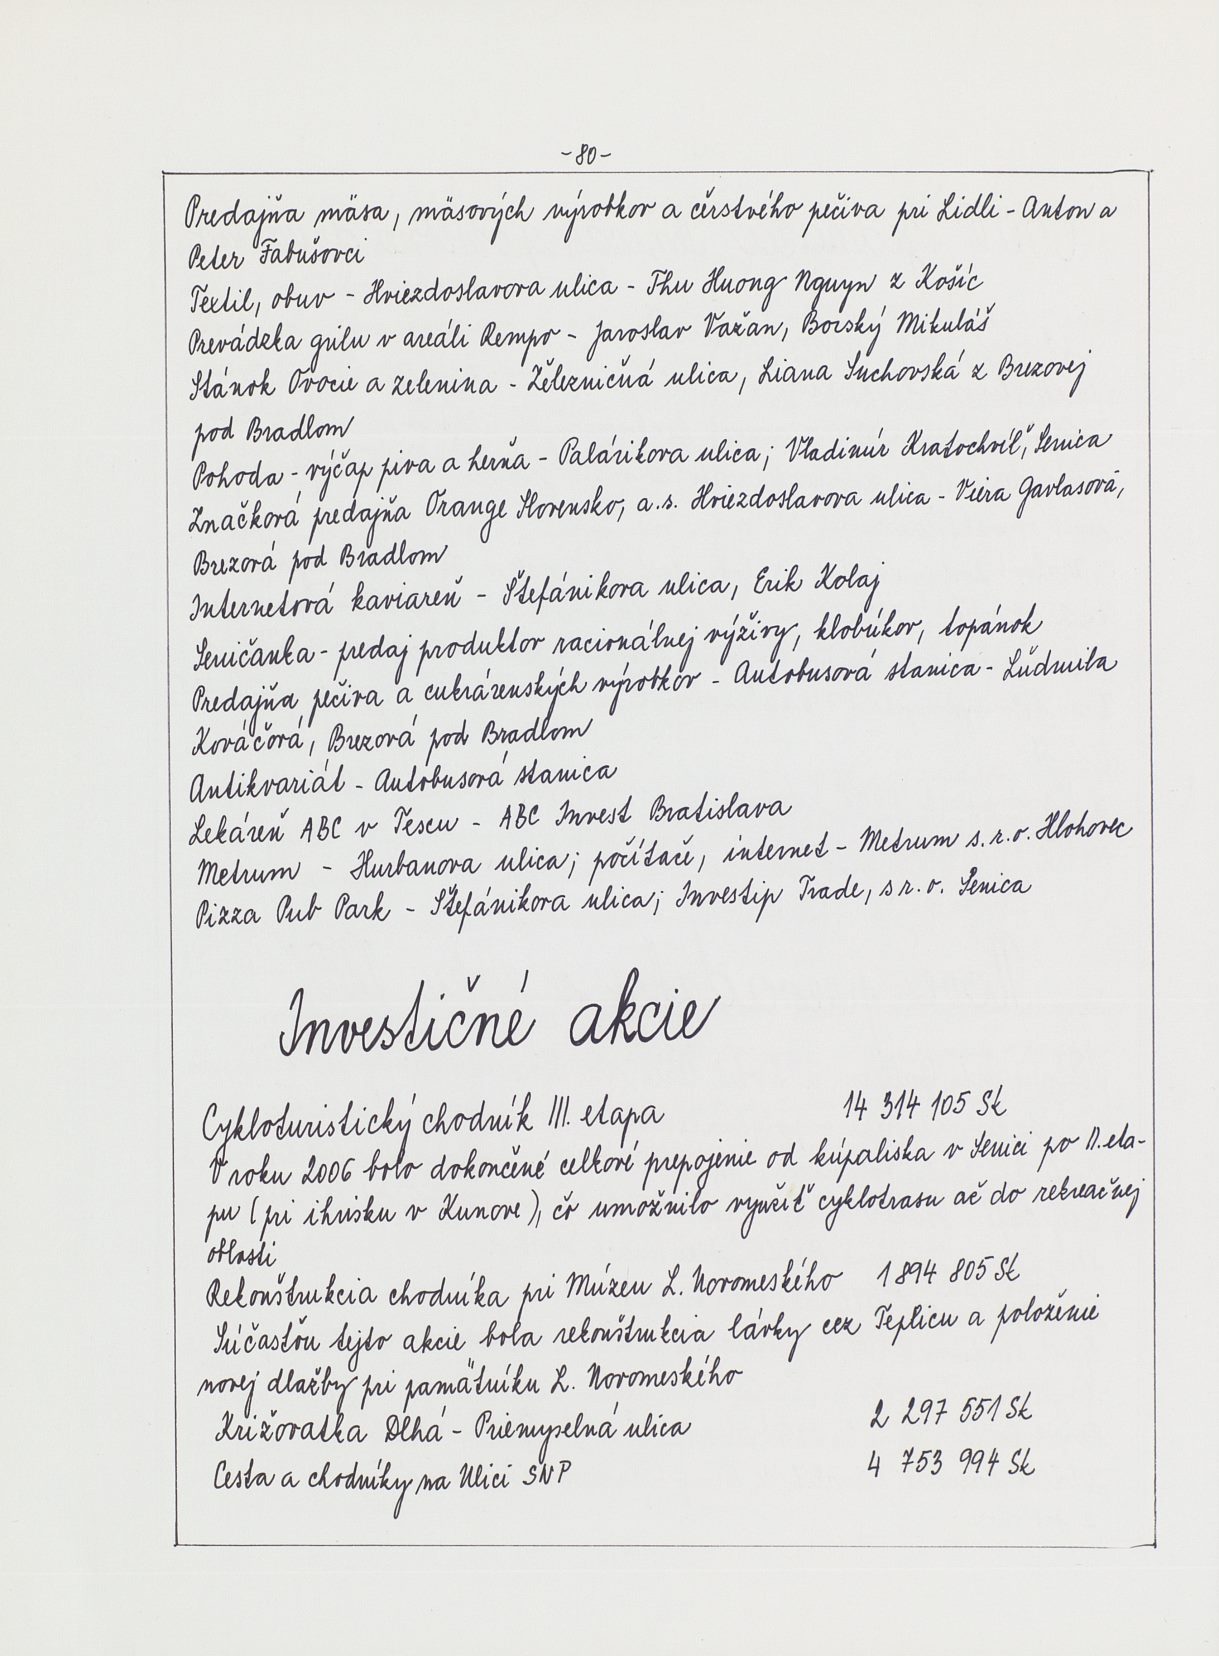 -80-
Predajňa mäsa, mäsových výrobkov a čerstvého pečiva pri Lidli - Anton a
Peter Fabušovci
Textil, obuv - Hviezdoslavova ulica - Thu Huong Nguyn z Košíc
Prevádzka grilu v areáli Rempo - Jaroslav Važan, Borský Mikuláš
Stánok Ovocie a zelenina - Železničná ulica, Liana Suchovská z Brezovej
pod Bradlom
Pohoda - výčap piva a herňa - Palárikova ulica; Vladimír Kratochvíľ, Senica
Značková predajňa Orange Slovensko, a.s. Hviezdoslavova ulica - Viera Gavlasová,
Brezová pod Bradlom
Internetová kaviareň - Štefánikova ulica, Erik Kolaj
Seničanka - predaj produktov racionálnej výživy, klobúkov, topánok
Predajňa pečiva a cukrárenských výrobkov - Autobusová stanica - Ľudmila
Kováčová, Brezová pod Bradlom
Antikvariát - Autobusová stanica
Lekáreň ABC v Tescu - ABC Invest Bratislava
Metrum - Hurbanova ulica; počítače, internet - Metrum s.r.o. Hlohovec
Pizza Pub Park - Štefánikova ulica; Investip Trade, s r. o. Senica
Investičné akcie
Cykloturistický chodník III. etapa 14 314 105 Sk
V roku 2006 bolo dokončené celkové prepojenie od kúpaliska v Senici po II. eta-
pu (pri ihrisku v Kunove), čo umožnilo využiť cyklotrasu až do rekreačnej
oblasti
Rekonštrukcia chodníka pri Múzeu L. Novomeského 1 894 805 Sk
Súčasťou tejto akcie bola rekonštrukcia lávky cez Teplicu a položenie
novej dlažby pri pamätníku L. Novomeského
Križovatka Dlhá - Priemyselná ulica 2 297 551 Sk
Cesta a chodníky na Ulici SNP 4 753 994 Sk